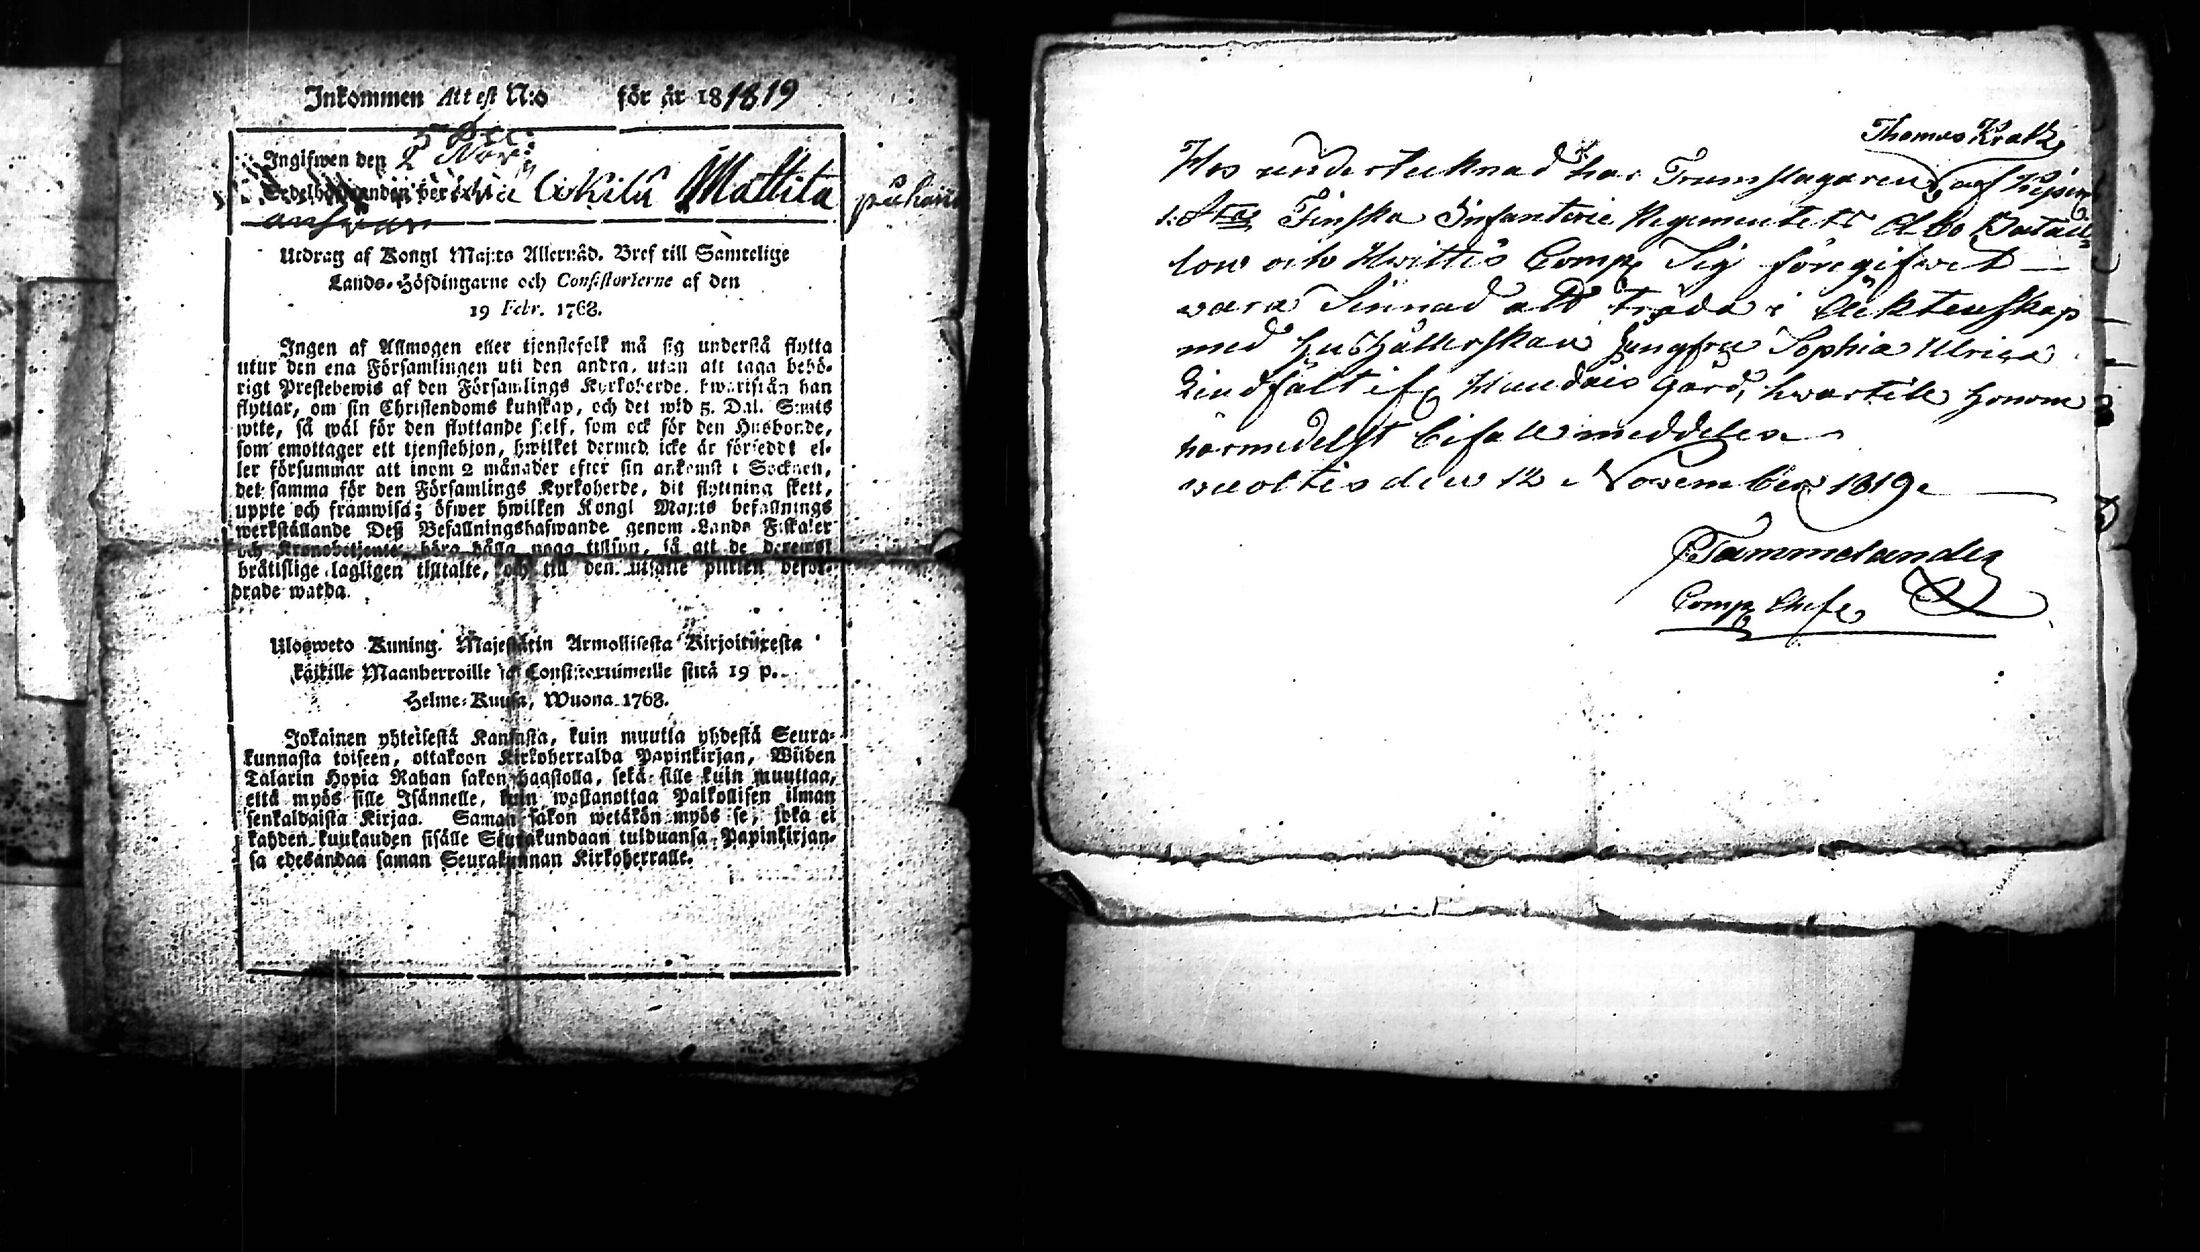 Inkommen Attest N:o för år 181819
5 Dec:
Ingifwen den 2 Nov:
Cirkila Mattila
answar
Utdrag af Kongl Maj:ts Allernåd. Bref till Samtelige
Lands-Höfdingarne och Consistorierne af den
19 Febr. 1768.
Ingen af Allmogen eller tjenstefolk må sig understå flytta
utur den ena Församlingen uti den andra, utan att taga behö-
rigt Prestebewis af den Församlings Kyrkoherde, hwarifrån han
flyttar, om sin Christendoms kunskap, och det wid 5. Dal. S:mts
wite, så wäl för den flyttande sjelf, som ock för den Husbonde,
som emottager ett tjenstehjon, hwilket dermed icke är förseddt el-
ler försummar att inom 2 månader efter sin ankomst i Socknen,
det samma för den Församlings Kyrkoherde, dit flyttning skett,
uppte och främwisa; öfwer hwilken Kongl Maj:ts befallnings
werkställande Deß Befallningshafwande genom Lands Fiskaler
och Kronobetjente böra hålla noga tillsyn, så att de deremot
bråtislige lagligen tilltalte, och till den utsatte plikten befor-
drade warda.
Ulosweto Kuning. Majestätin Armollisesta Kirjoituxesta
kaikille Maanherroille ja Consistoriumeille siitä 19 p.
Helme-Kuusa, Wuona 1768.
Jokainen yhteisestä Kansasta, kuin muutta yhdestä Seura-
kunnasta toiseen, ottakoon Kirkoherralda Papinkirjan, Wiiden
Talarin Hopia Rahan sakon haastolla, sekä sille kuin muuttaa,
että myös sille Isännelle, kuin wastanottaa Palkollisen ilman
senkaldaista Kirjaa. Saman sakon wetäkön myös se, joka ei
kahden kuukauden sisälle Seurakundaan tulduansa Papinkirjan-
sa edesandaa saman Seurakunnan Kirkoherralle.
Thomas Kratz
Hos undertecknad har Trumslagaren af
1:sta Finska Infanterie Regementets Åbo Batail-
lon och Hwittis Comp. Sig föregifwet
wara Sinnad att träda i Äcktenskap
med Hushållerskan Jungfru Sophia Ulrica
Lindfält ifr. Gård, hwartill Honom
härmedelst bifall meddelas
den 12 November 1819.
Tammelander
Comp. Chefe